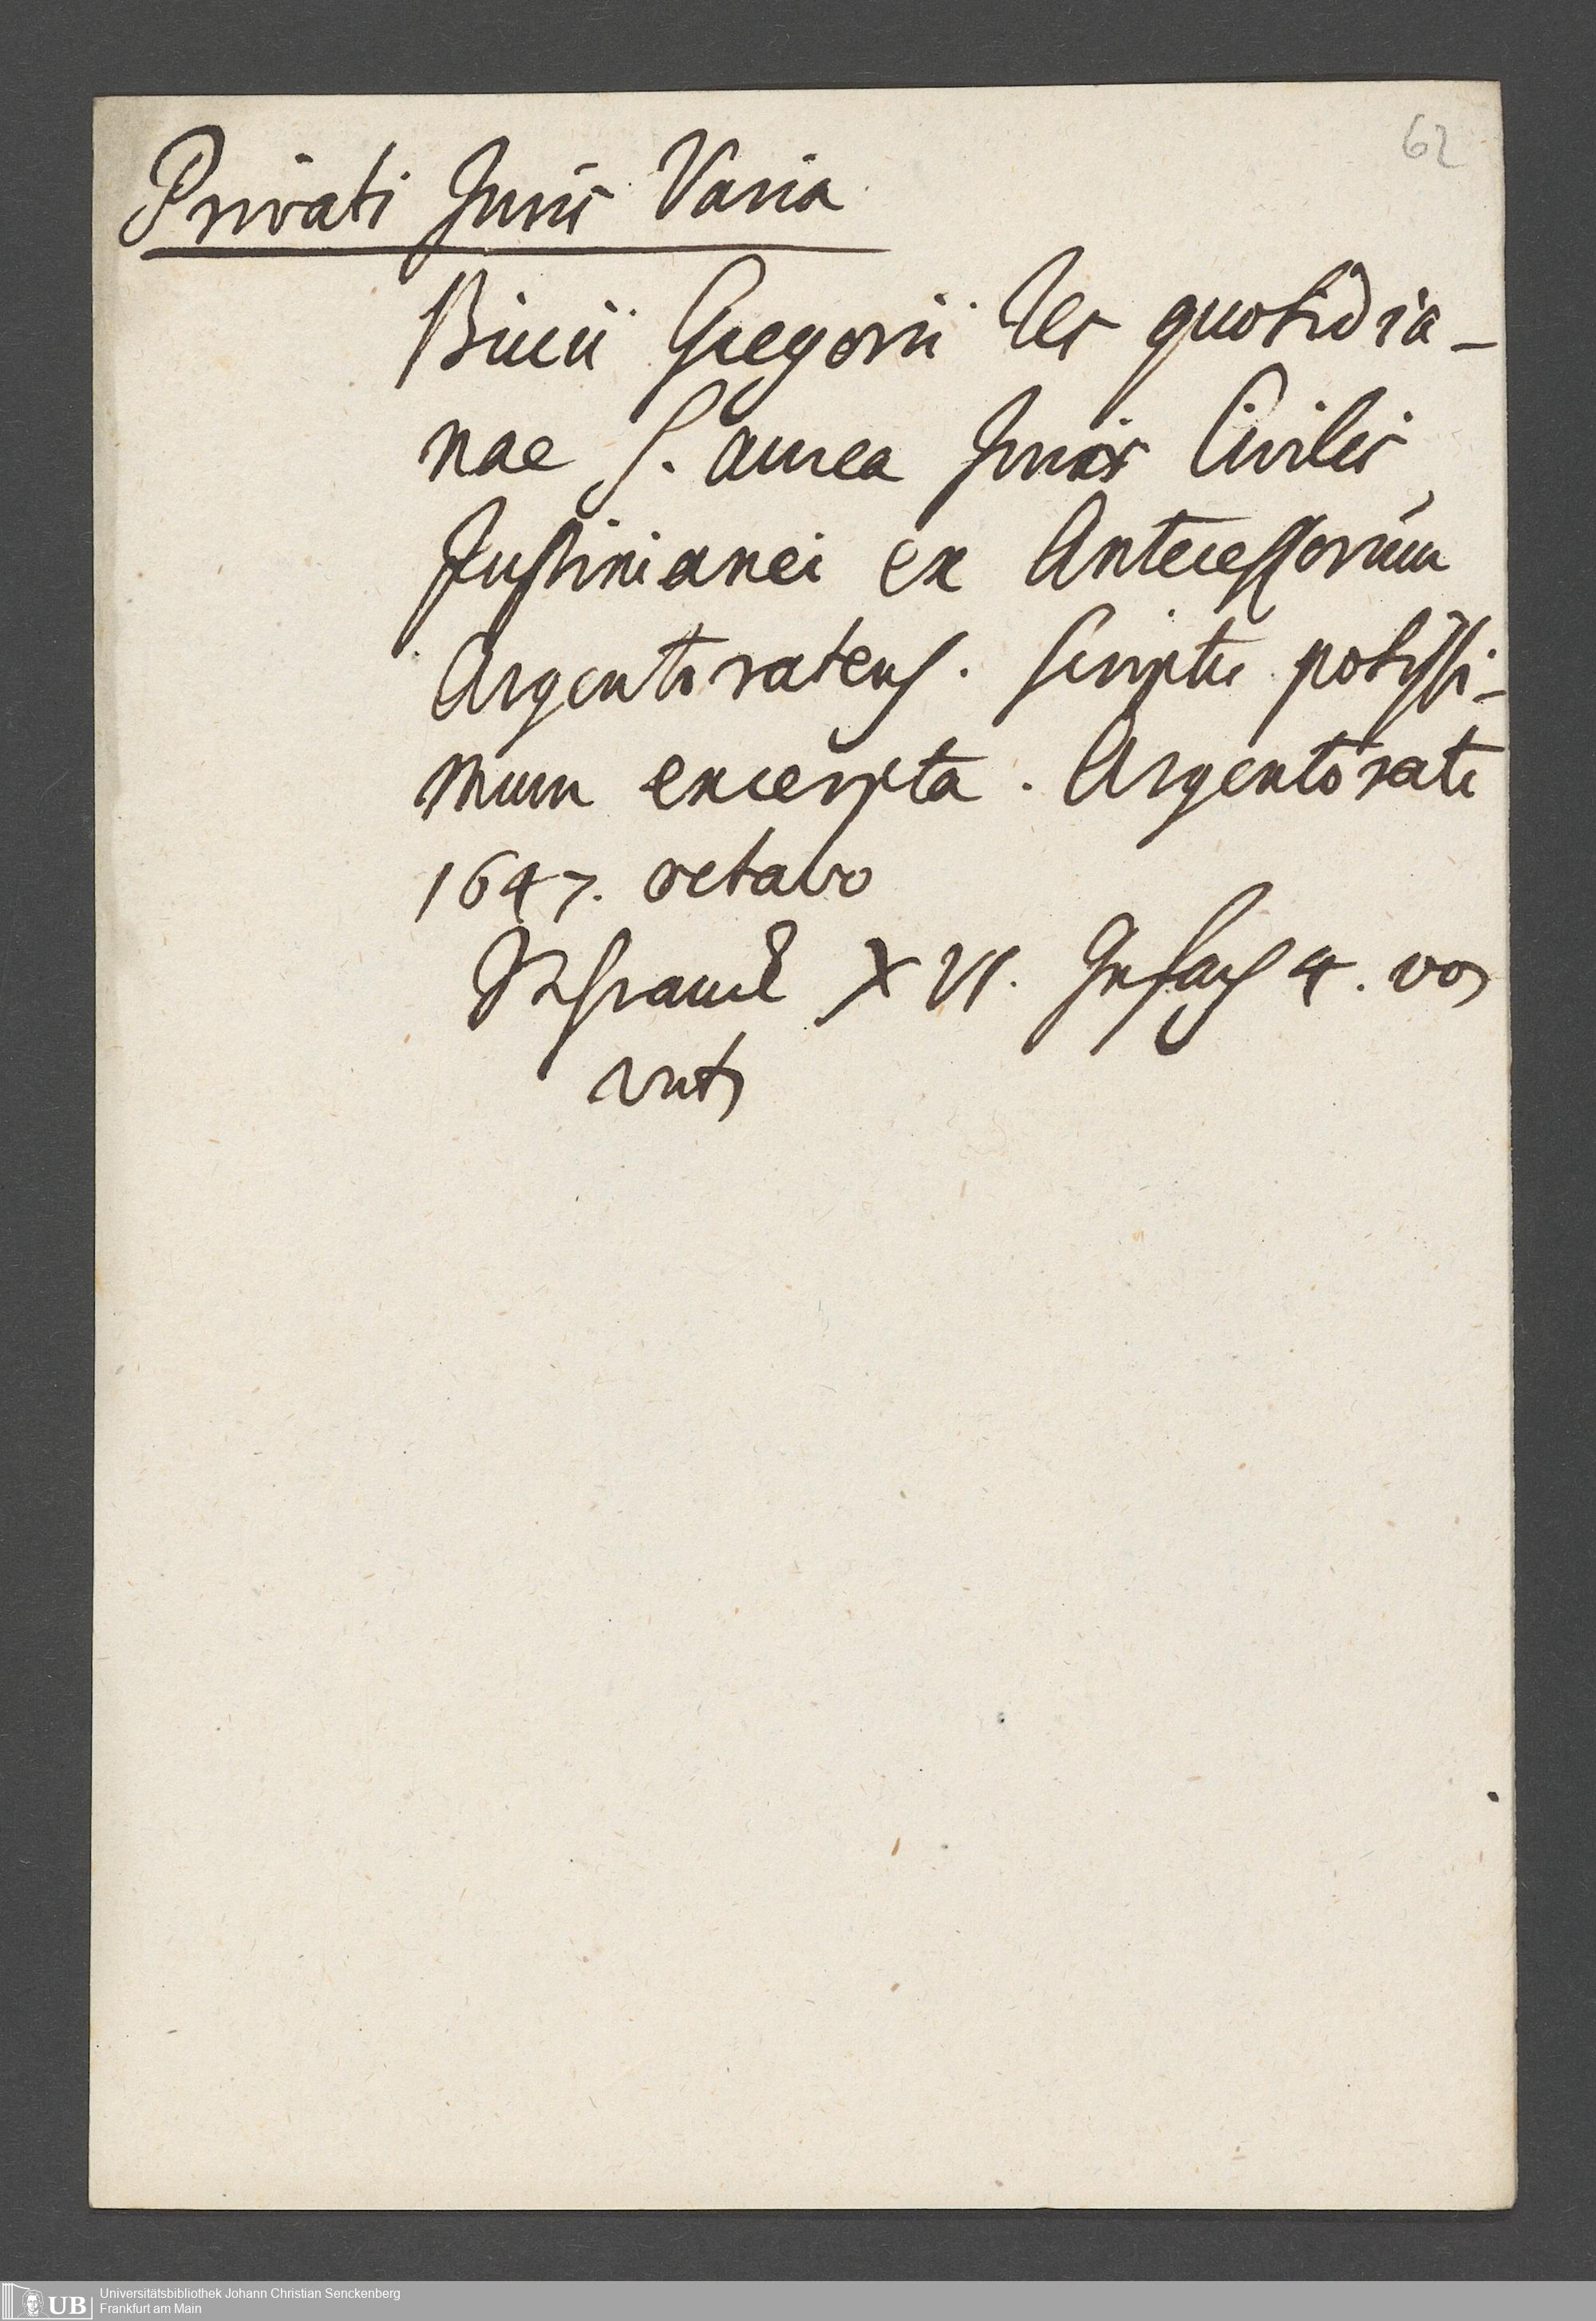 62
Privati Juris Varia
Biccii Gregorii Res quotidia-
nae S. aurea Juris Civilis
Justinianei ex Antecessorum
Argentoratens. scriptis potissi-
mum excerpta. Argentorati
1647. octavo
Schranck XVI. Gefach 4. von
unten
UB Universitätsbibliothek Johann Christian Senckenberg
Frankfurt am Main